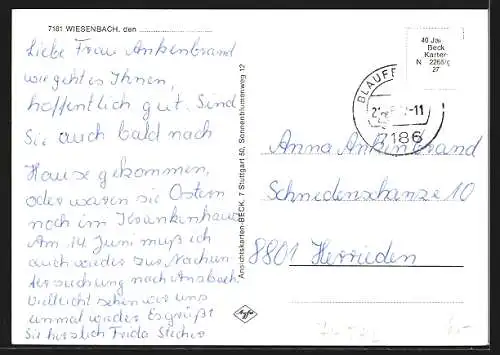 7181 WIESENBACH, den
Liebe Frau Ankenbrand
wie geht es Ihnen,
hoffentlich gut. Sind
Sie auch bald nach
Hause gekommen,
oder waren sie Ostern
noch im Krankenhaus
Am 14. Juni muß ich
auch wieder zur Nachun
tersuchung nach Ansbach.
Vielleicht sehen wir uns
einmal wieder Es grüßt
Sie herzlich Frida
Ansichtskarten-BECK, 7 Stuttgart 50, Sonnenblumenweg 12
Agfa
40 Ja
Beck
Karten
N
27
BLAUF
-11
7186
Anna Ankenbrand
Schniedenschanze 10
8801 Herrieden